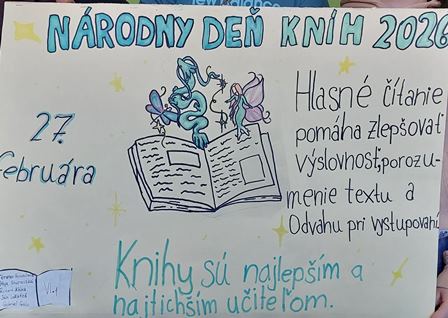 NÁRODNY DEŇ KNÍH 2026
27.
Februára
Hlasné čítanie
pomáha zlepšovať
výslovnosť, porozu-
menie textu a
Odvahu pri vystupovaní
Knihy sú najlepším a
najtichším učiteľom.
VI.A